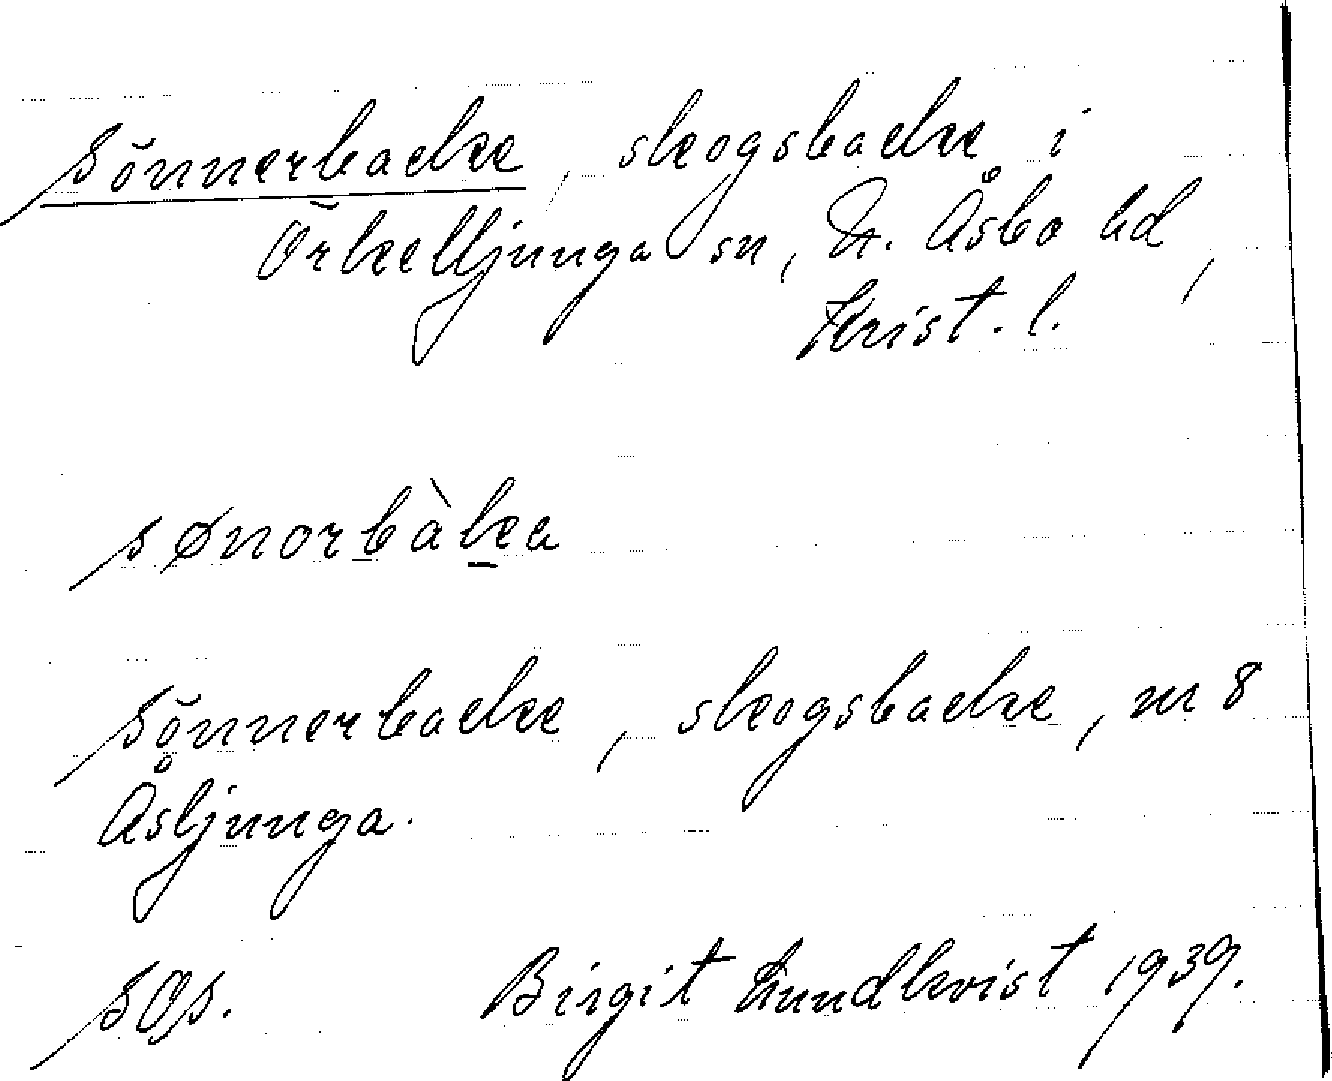 Sönnerbacke, skogsbacke i
Örkelljunga sn, N. Åsbo hd,
Krist. l.
sønorbàka
Sönnerbacke, skogsbacke, nr 8
Åsljunga.
SOS. Birgit Lundkvist 1939.